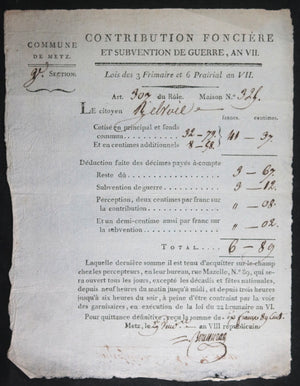 CONTRIBUTION FONCIÈRE
ET SUBVENTION DE GUERRE, AN VII.
COMMUNE
DE METZ.
Lois des 3 Frimaire et 6 Prairial an VII.
SECTION.
Art. 307 du Rôle. Maison N.º 326.
LE citoyen
francs. centimes.
Cotisé en principal et fonds
commun 32-72
Et en centimes additionnels 8-
41 - 37.
Déduction faite des décimes payés à-compte
Reste dû 3 - 67
Subvention de guerre 3 - 12
Perception, deux centimes par franc sur
la contribution " - 08.
Et un demi-centime aussi par franc sur
la subvention " - 02.
TOTAL 6 - 89
Laquelle dernière somme il est tenu d'acquitter sur-le-champ
chez les percepteurs, en leur bureau, rue Mazelle, N.º 89, qui se-
ra ouvert tous les jours, excepté les décadis et fêtes nationales,
depuis neuf heures du matin jusqu'à midi, et depuis trois heures
jusqu'à six heures du soir, à peine d'être contraint par la voie
des garnisaires, en exécution de la loi du 22 brumaire an VI.
Pour quittance définitive reçu la somme de six francs 89 Cent.
Metz, le an VIII républicain